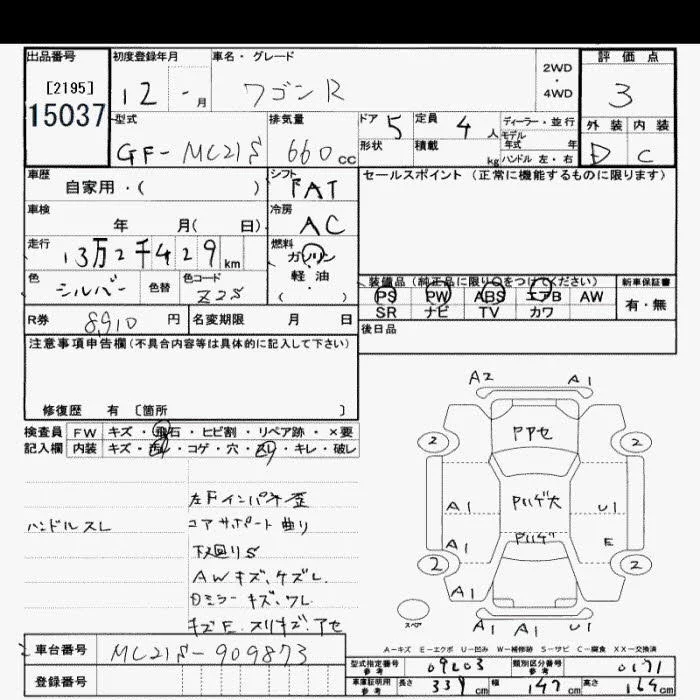 出品番号 初度登録年月 車名・グレード 評価点
[2195] 12 - 月 ワゴンR 2WD・4WD 3
15037
型式 排気量 ドア 5 定員 4 人 ディーラー・並行 外装 内装
GF-MC21S 660cc 形状 積載 kg モデル年式 年 D C
ハンドル 左・右
車歴 シフト セールスポイント (正常に機能するものに限ります)
自家用・( ) FAT
車検 冷房
年 月( 日) AC
走行 燃料
13万2千429km ガソリン
軽・油
( )
色 シルバー 色替 色コード Z2S
装備品(純正品に限り○をつけてください) 新車保証書
PS PW ABS エアB AW 有・無
SR ナビ TV カワ
R券 8910 円 名変期限 月 日
後日品
注意事項申告欄(不具合内容等は具体的に記入して下さい)
修復歴 有 〔箇所 〕
検査員 FW キズ・飛石・ヒビ割・リペア跡・×要
記入欄 内装 キズ・汚レ・コゲ・穴・スレ・キレ・破レ
左Fインパネ歪
ハンドルスレ コアサポート曲り
下廻りS
AWキズ、ケズレ
Dミラーキズ、ワレ
キズE、スリキズ、アセ
A2 A1
Pアセ
2 2
A1 Pハゲ大 U1
Pハゲ
A1 E
2 2
A1 A1
A1 A1 U1
スペア
A－キズ E－エクボ U－凹み W－補修跡 S－サビ C－腐食 XX－交換済
車台番号 MC21S-909873
登録番号
型式指定番号 参考 09203 類別区分番号 参考 0171
車庫証明用 参考 長さ 339cm 幅 147cm 高さ 164cm